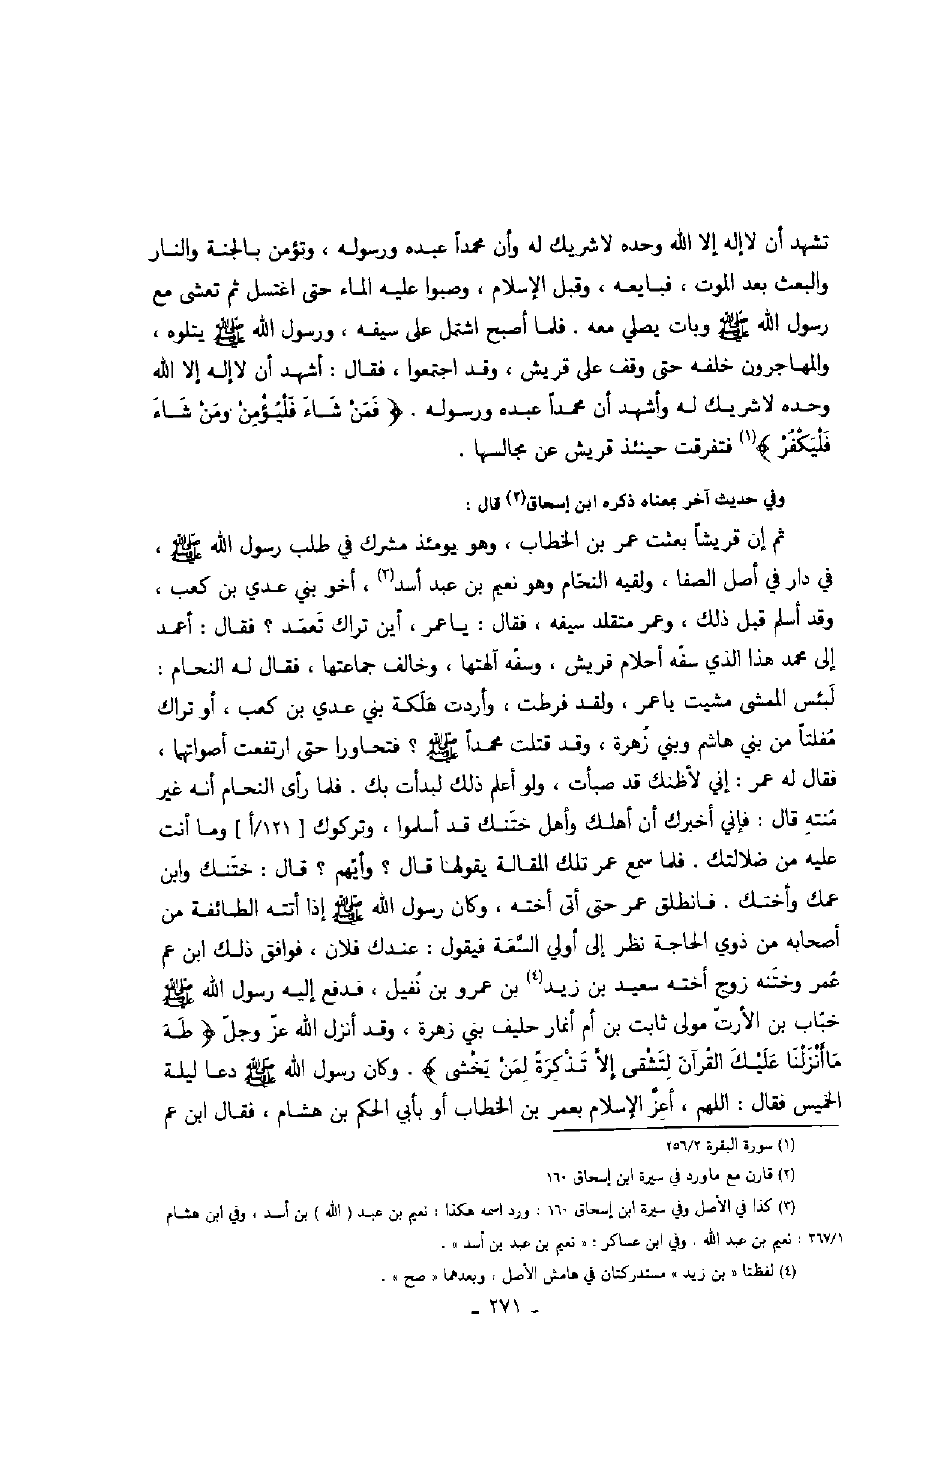 تشهد أن لاإله إلا الله وحده لاشريك له وأن محمداً عبده ورسوله ، وتؤمن بالجنة والنار
والبعث بعد الموت ، فبايعه ، وقبل الإسلام ، وصبوا عليه الماء حتى اغتسل ثم تعشى مع
رسول الله ﷺ وبات يصلي معه . فلما أصبح اشتمل على سيفه ، ورسول الله ﷺ يتلوه ،
والمهاجرون خلفه حتى وقف على قريش ، وقد اجتمعوا ، فقال : أشهد أن لاإله إلا الله
وحده لاشريك له وأشهد أن محمداً عبده ورسوله . ﴿ فَمَنْ شَاءَ فَلْيُؤْمِنْ ومَنْ شَاءَ
فَلْيَكْفُرْ ﴾(١) فتفرقت حينئذ قريش عن مجالسها .
وفي حديث آخر بمعناه ذكره ابن إسحاق(٢) قال :
ثم إن قريشاً بعثت عمر بن الخطاب ، وهو يومئذ مشرك في طلب رسول الله ﷺ ،
في دار في أصل الصفا ، ولقيه النحّام وهو نعيم بن عبد أسد(٣) ، أخو بني عدي بن كعب ،
وقد أسلم قبل ذلك ، وعمر متقلد سيفه ، فقال : ياعمر ، أين تراك تَعمَد ؟ فقال : أعمد
إلى محمد هذا الذي سفّه أحلام قريش ، وسفّه آلهتها ، وخالف جماعتها ، فقال له النحام :
لَبئس الممشى مشيت ياعمر ، ولقد فرطت ، وأردت هَلَكة بني عدي بن كعب ، أو تراك
مُفلتاً من بني هاشم وبني زُهرة ، وقد قتلت محمداً ﷺ ؟ فتحاورا حتى ارتفعت أصواتها ،
فقال له عمر : إني لأظنك قد صبأت ، ولو أعلم ذلك لبدأت بك . فلما رأى النحام أنه غير
مُنتهِ قال : فإني أخبرك أن أهلك وأهل ختَنك قد أسلموا ، وتركوك [ ١٢١/أ ] وما أنت
عليه من ضلالتك . فلما سمع عمر تلك المقالة يقولها قال ؟ وأيّهم ؟ قال : ختَنك وابن
عمك وأختك . فانطلق عمر حتى أتى أخته ، وكان رسول الله ﷺ إذا أتته الطائفة من
أصحابه من ذوي الحاجة نظر إلى أولي السَّعَة فيقول : عندك فلان ، فوافق ذلك ابن عم
عُمر وختَنه زوج أخته سعيد بن زيد(٤) بن عمرو بن نُفيل ، فدفع إليه رسول الله ﷺ
خبّاب بن الأرتّ مولى ثابت بن أم أنمار حليف بني زهرة ، وقد أنزل الله عزّ وجلّ ﴿ طَهَ
مَاأَنْزَلْنَا عَلَيْكَ القُرآنَ لِتَشْقى إلاّ تَذْكِرَةً لِمَنْ يَخْشى ﴾ . وكان رسول الله ﷺ دعا ليلة
الخميس فقال : اللهم ، أعِزَّ الإسلام بعمر بن الخطاب أو بأبي الحكم بن هشام ، فقال ابن عم
(١) سورة البقرة ٢٥٦/٢
(٢) قارن مع ماورد في سيرة ابن إسحاق ١٦٠
(٣) كذا في الأصل وفي سيرة ابن إسحاق ١٦٠ : ورد اسمه هكذا : نعيم بن عبد ( الله ) بن أسد ، وفي ابن هشام
٣٦٧/١ : نعيم بن عبد الله . وفي ابن عساكر : « نعيم بن عبد بن أسد » .
(٤) لفظتا « بن زيد » مستدركتان في هامش الأصل ، وبعدهما « صح » .
ـ ٢٧١ ـ